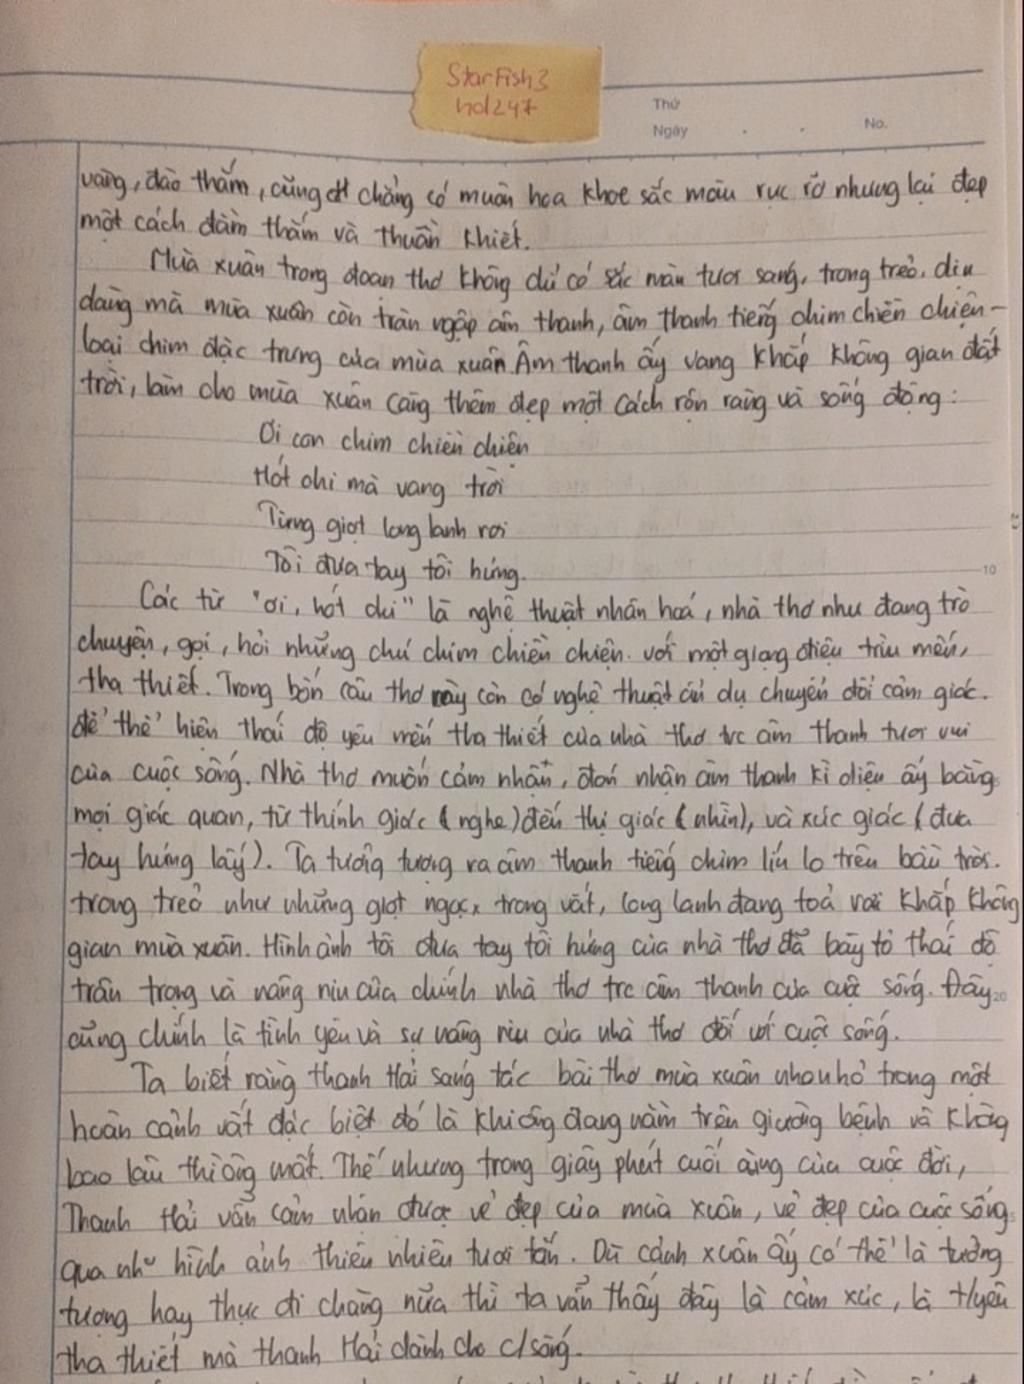 StarFish3
hd247
Thứ
Ngày . . No.
vàng, đào thắm, cũng chẳng có muôn hoa khoe sắc màu rực rỡ nhưng lại đẹp
một cách đằm thắm và thuần khiết.
Mùa xuân trong đoạn thơ không chỉ có sắc màu tươi sáng, trong trẻo, dịu
dàng mà mùa xuân còn tràn ngập âm thanh, âm thanh tiếng chim chiền chiện -
loài chim đặc trưng của mùa xuân. Âm thanh ấy vang khắp không gian đất
trời, làm cho mùa xuân càng thêm đẹp một cách rộn ràng và sống động:
Ơi con chim chiền chiện
Hót chi mà vang trời
Từng giọt long lanh rơi
Tôi đưa tay tôi hứng.
10
Các từ "ơi, hót chi" là nghệ thuật nhân hoá, nhà thơ như đang trò
chuyện, gọi, hỏi những chú chim chiền chiện. với một giọng điệu trìu mến,
tha thiết. Trong bốn câu thơ này còn có nghệ thuật ẩn dụ chuyển đổi cảm giác.
để thể hiện thái độ yêu mến tha thiết của nhà thơ trc âm thanh tươi vui
của cuộc sống. Nhà thơ muốn cảm nhận, đón nhận âm thanh kì diệu ấy bằng
mọi giác quan, từ thính giác (nghe) đến thị giác (nhìn), và xúc giác (đưa
tay hứng lấy). Ta tưởng tượng ra âm thanh tiếng chim líu lo trên bầu trời.
trong trẻo như những giọt ngọc, trong vắt, long lanh đang toả rơi khắp không
gian mùa xuân. Hình ảnh tôi đưa tay tôi hứng của nhà thơ đã bày tỏ thái độ
trân trọng và nâng niu của chính nhà thơ trc âm thanh của cuộc sống. Đây
20
cũng chính là tình yêu và sự nâng niu của nhà thơ đối với cuộc sống.
Ta biết rằng thanh Hải sáng tác bài thơ mùa xuân nho nhỏ trong một
hoàn cảnh rất đặc biệt đó là khi ông đang nằm trên giường bệnh và không
bao lâu thì ông mất. Thế nhưng trong giây phút cuối cùng của cuộc đời,
Thanh Hải vẫn cảm nhận được vẻ đẹp của mùa xuân, vẻ đẹp của cuộc sống
qua như hình ảnh thiên nhiên tươi tắn. Dù cảnh xuân ấy có thể là tưởng
tượng hay thực đi chăng nữa thì ta vẫn thấy đây là cảm xúc, là t/yêu
tha thiết mà thanh Hải dành cho c/sống.